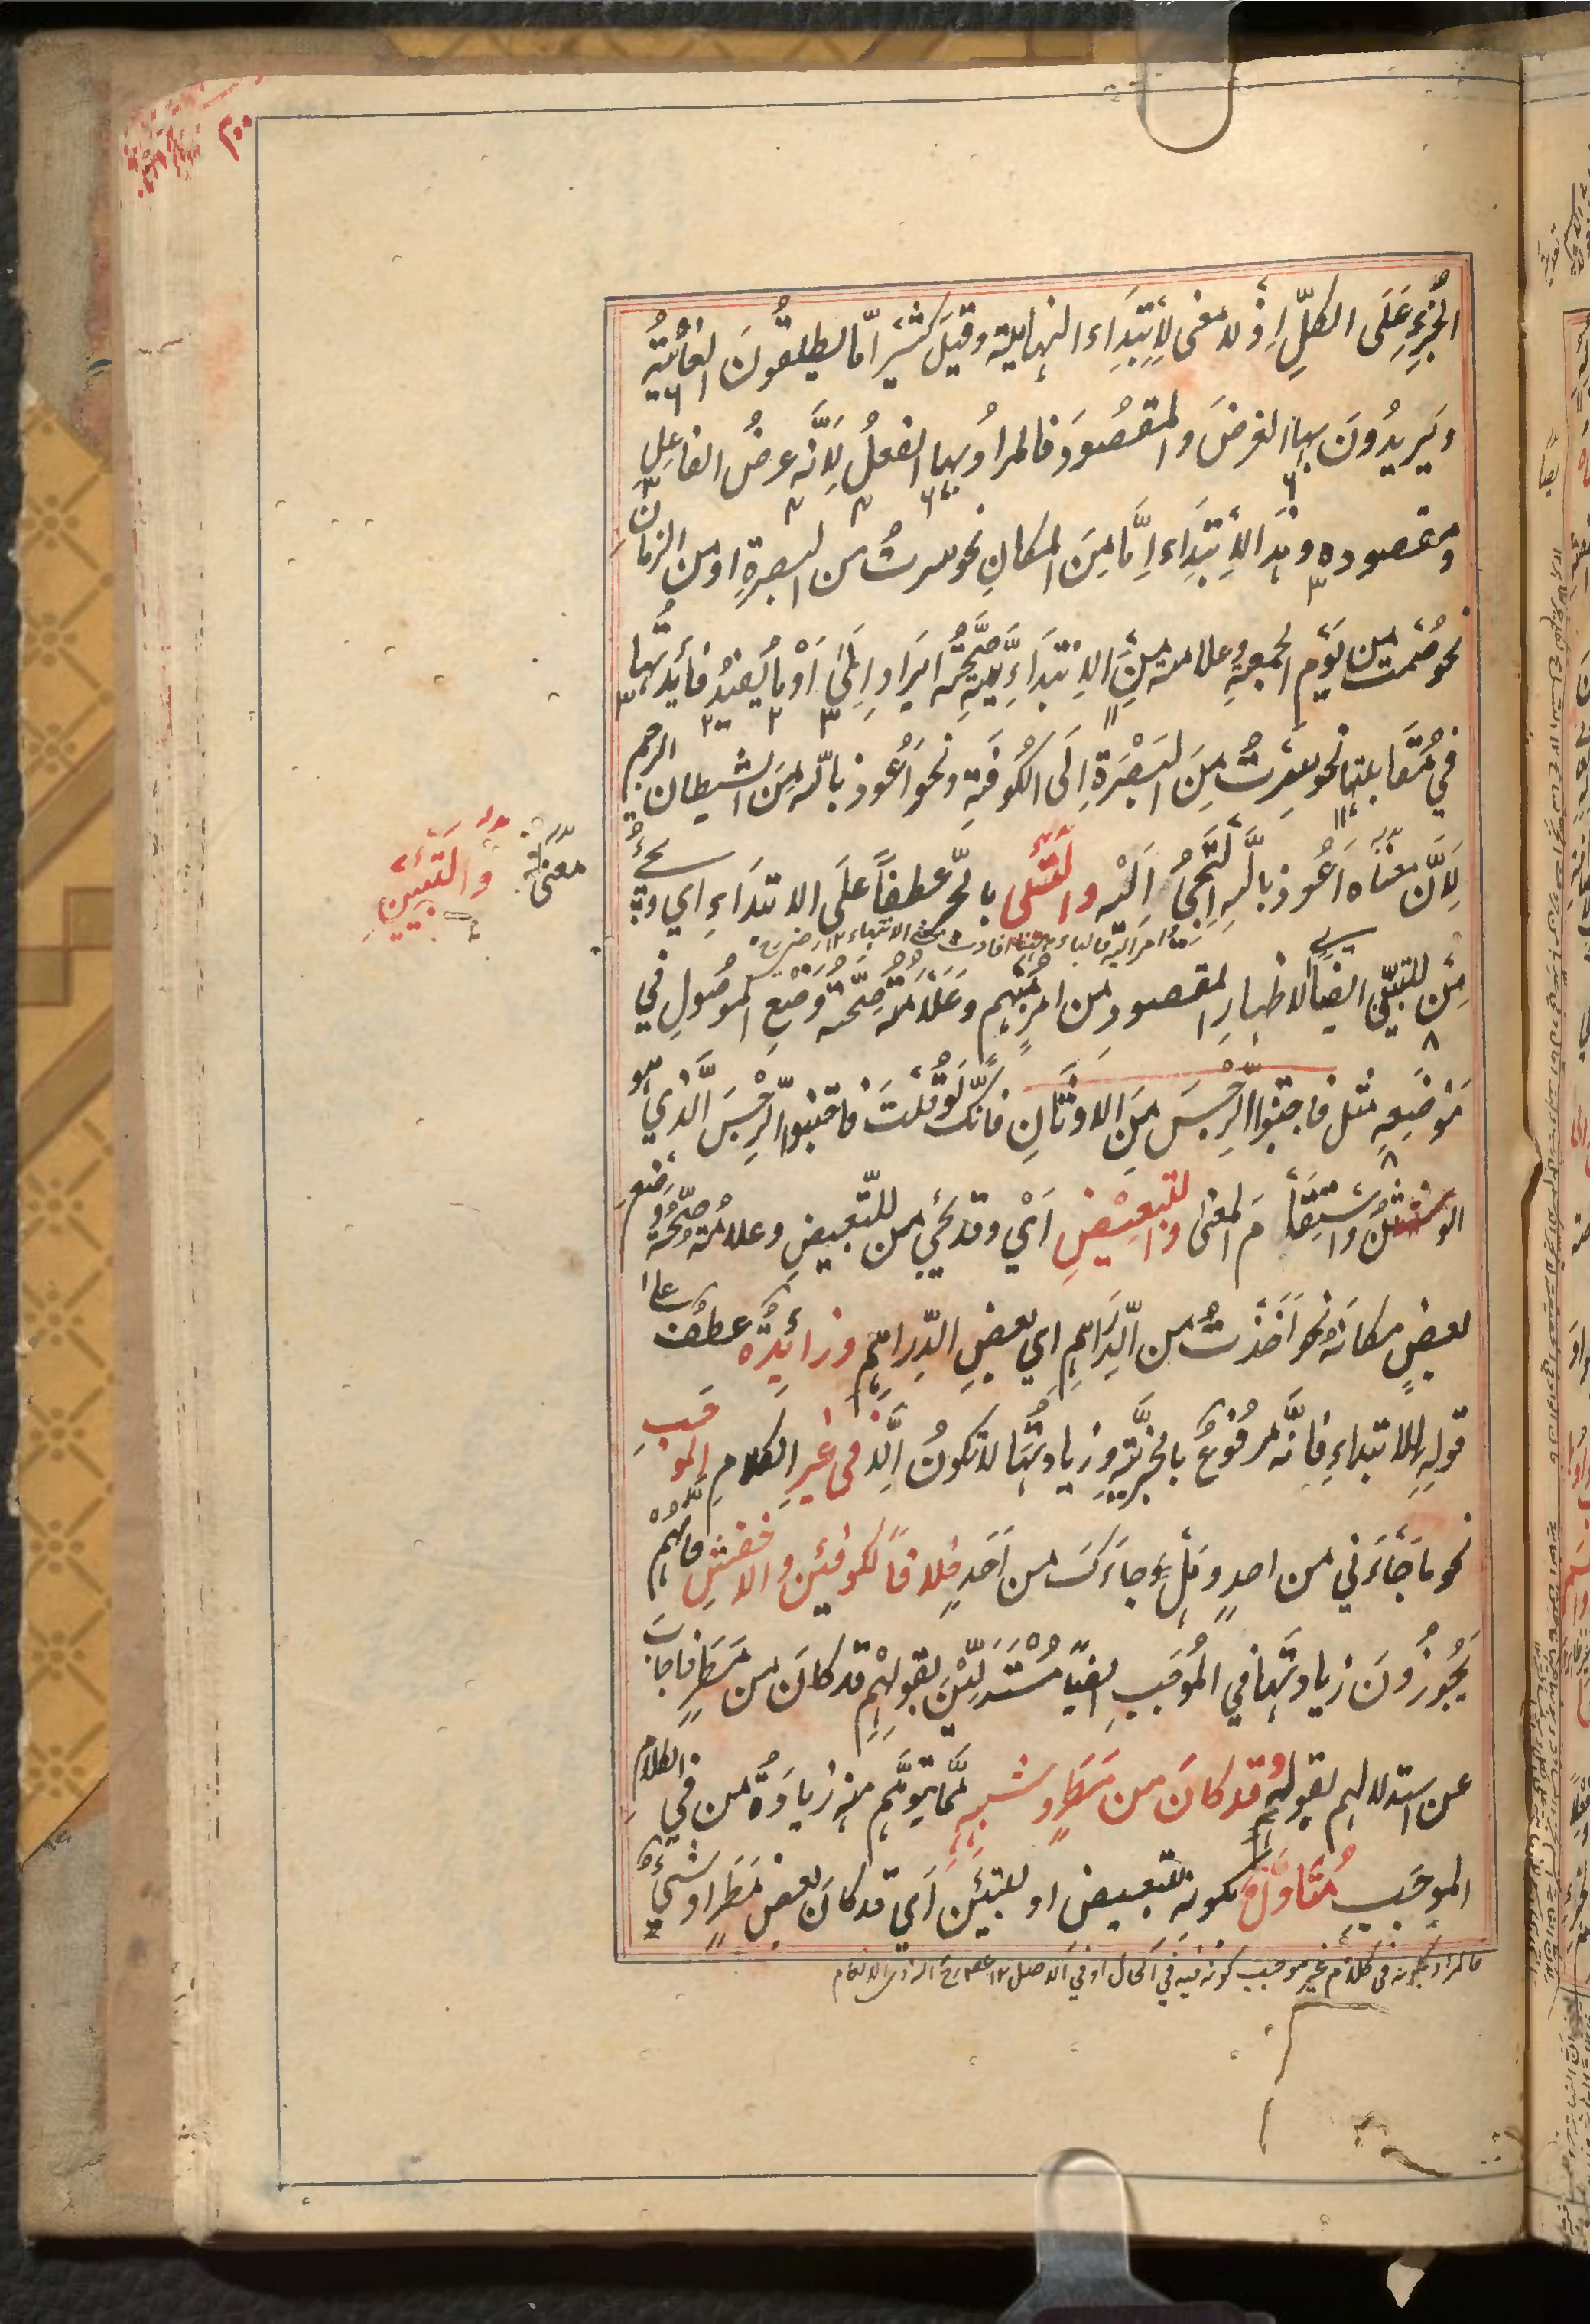 ٣٠٠
الجزءِ عَلَى الكلِّ اِذْ لا معنى لِاِبْتِدَاء النهاية وقيل كثيرًا مّا يطلقُونَ الغايةَ
ويَرِيدُونَ بها الغرضَ والمقصُودَ فالمرادُ بها الفعلُ لِاَنَّه غرضُ الفاعِلِ
ومقصوده وهٰذا الاِبْتِدَاء اِمَّا مِنَ المكانِ نحو سرتُ من البصرةِ او من الزمانِ
نحو صُمْتُ من يَوْمِ الجمعةِ وعلامة مِنْ الاِبْتِدَاءِيَّةِ صِحَّةُ ايرادِ اِلَىٰ اَوْ ما يُفِيْدُ فائدتَها
في مُقَابلتِها نحو سِرْتُ مِنَ البَصْرَةِ اِلَى الكُوفَةِ ونحو اَعُوذ باللّٰه مِنَ الشيطان الرجيم
لِاَنَّ معنَاه اَعُوذ باللّٰه اَلْتَجِئُ اِلَيْه والتبيين بالجرّ عطفاً عَلَى الابتدَاءِ اي ويجيءُ
معنى
وَالتبيينِ
مِنْ للتبيين ايضا لاظهارِ المقصودِ من امرٍ مُبْهَمٍ وَعَلَامَتُه صِحّة وَضْعِ الموصُولِ في
مَوْضِعِه مثل فاجتنبوا الرِّجْسَ مِنَ الاوثَانِ فاِنَّكَ لَوْ قُلْتَ فاجتنبوا الرِّجْسَ الَّذِي هو
الوثنُ استقامَ المعنى والتبعيضِ اَيْ وقد يجيءُ من للتّبعيضِ وعلامتُه صِحَّةُ وَضعِ
بعضٍ مكانَه نحو اَخَذْتُ من الدَّرَاهِمِ اي بعضِ الدّراهِمِ وزائدةٌ عطفٌ على
قوله للابتداءِ فاِنَّه مرفُوعٌ بالخبريَّةِ وزيادتُها لا تكونُ اِلّا في غيرِ الكلامِ الموجَبِ
نحو ما جَاءَني من احدٍ وهل جاءَكَ من اَحَدٍ خلافاً للكوفيين والاخفشِ فاِنَّهُمْ
يُجَوِّزُونَ زيادتَها في المُوجَبِ ايضاً مُسْتَدِلِّيْنَ بقولِهِمْ قد كانَ من مَطَرٍ فاجابَ
عن استدلالهم بقوله وقد كانَ من مَطَرٍ وشبهِه مِمَّا يتوهّم منه زيادَةُ من في الكلامِ
الموجَبِ مُتَاَوَّلٌ بكونه للتبعيض او للتبيين اَي قد كانَ بعض مَطَرٍ او شيءٌ
فالمراد بكونه في كلام غير موجب كونه فيه في الحال او في الاصل ١٢